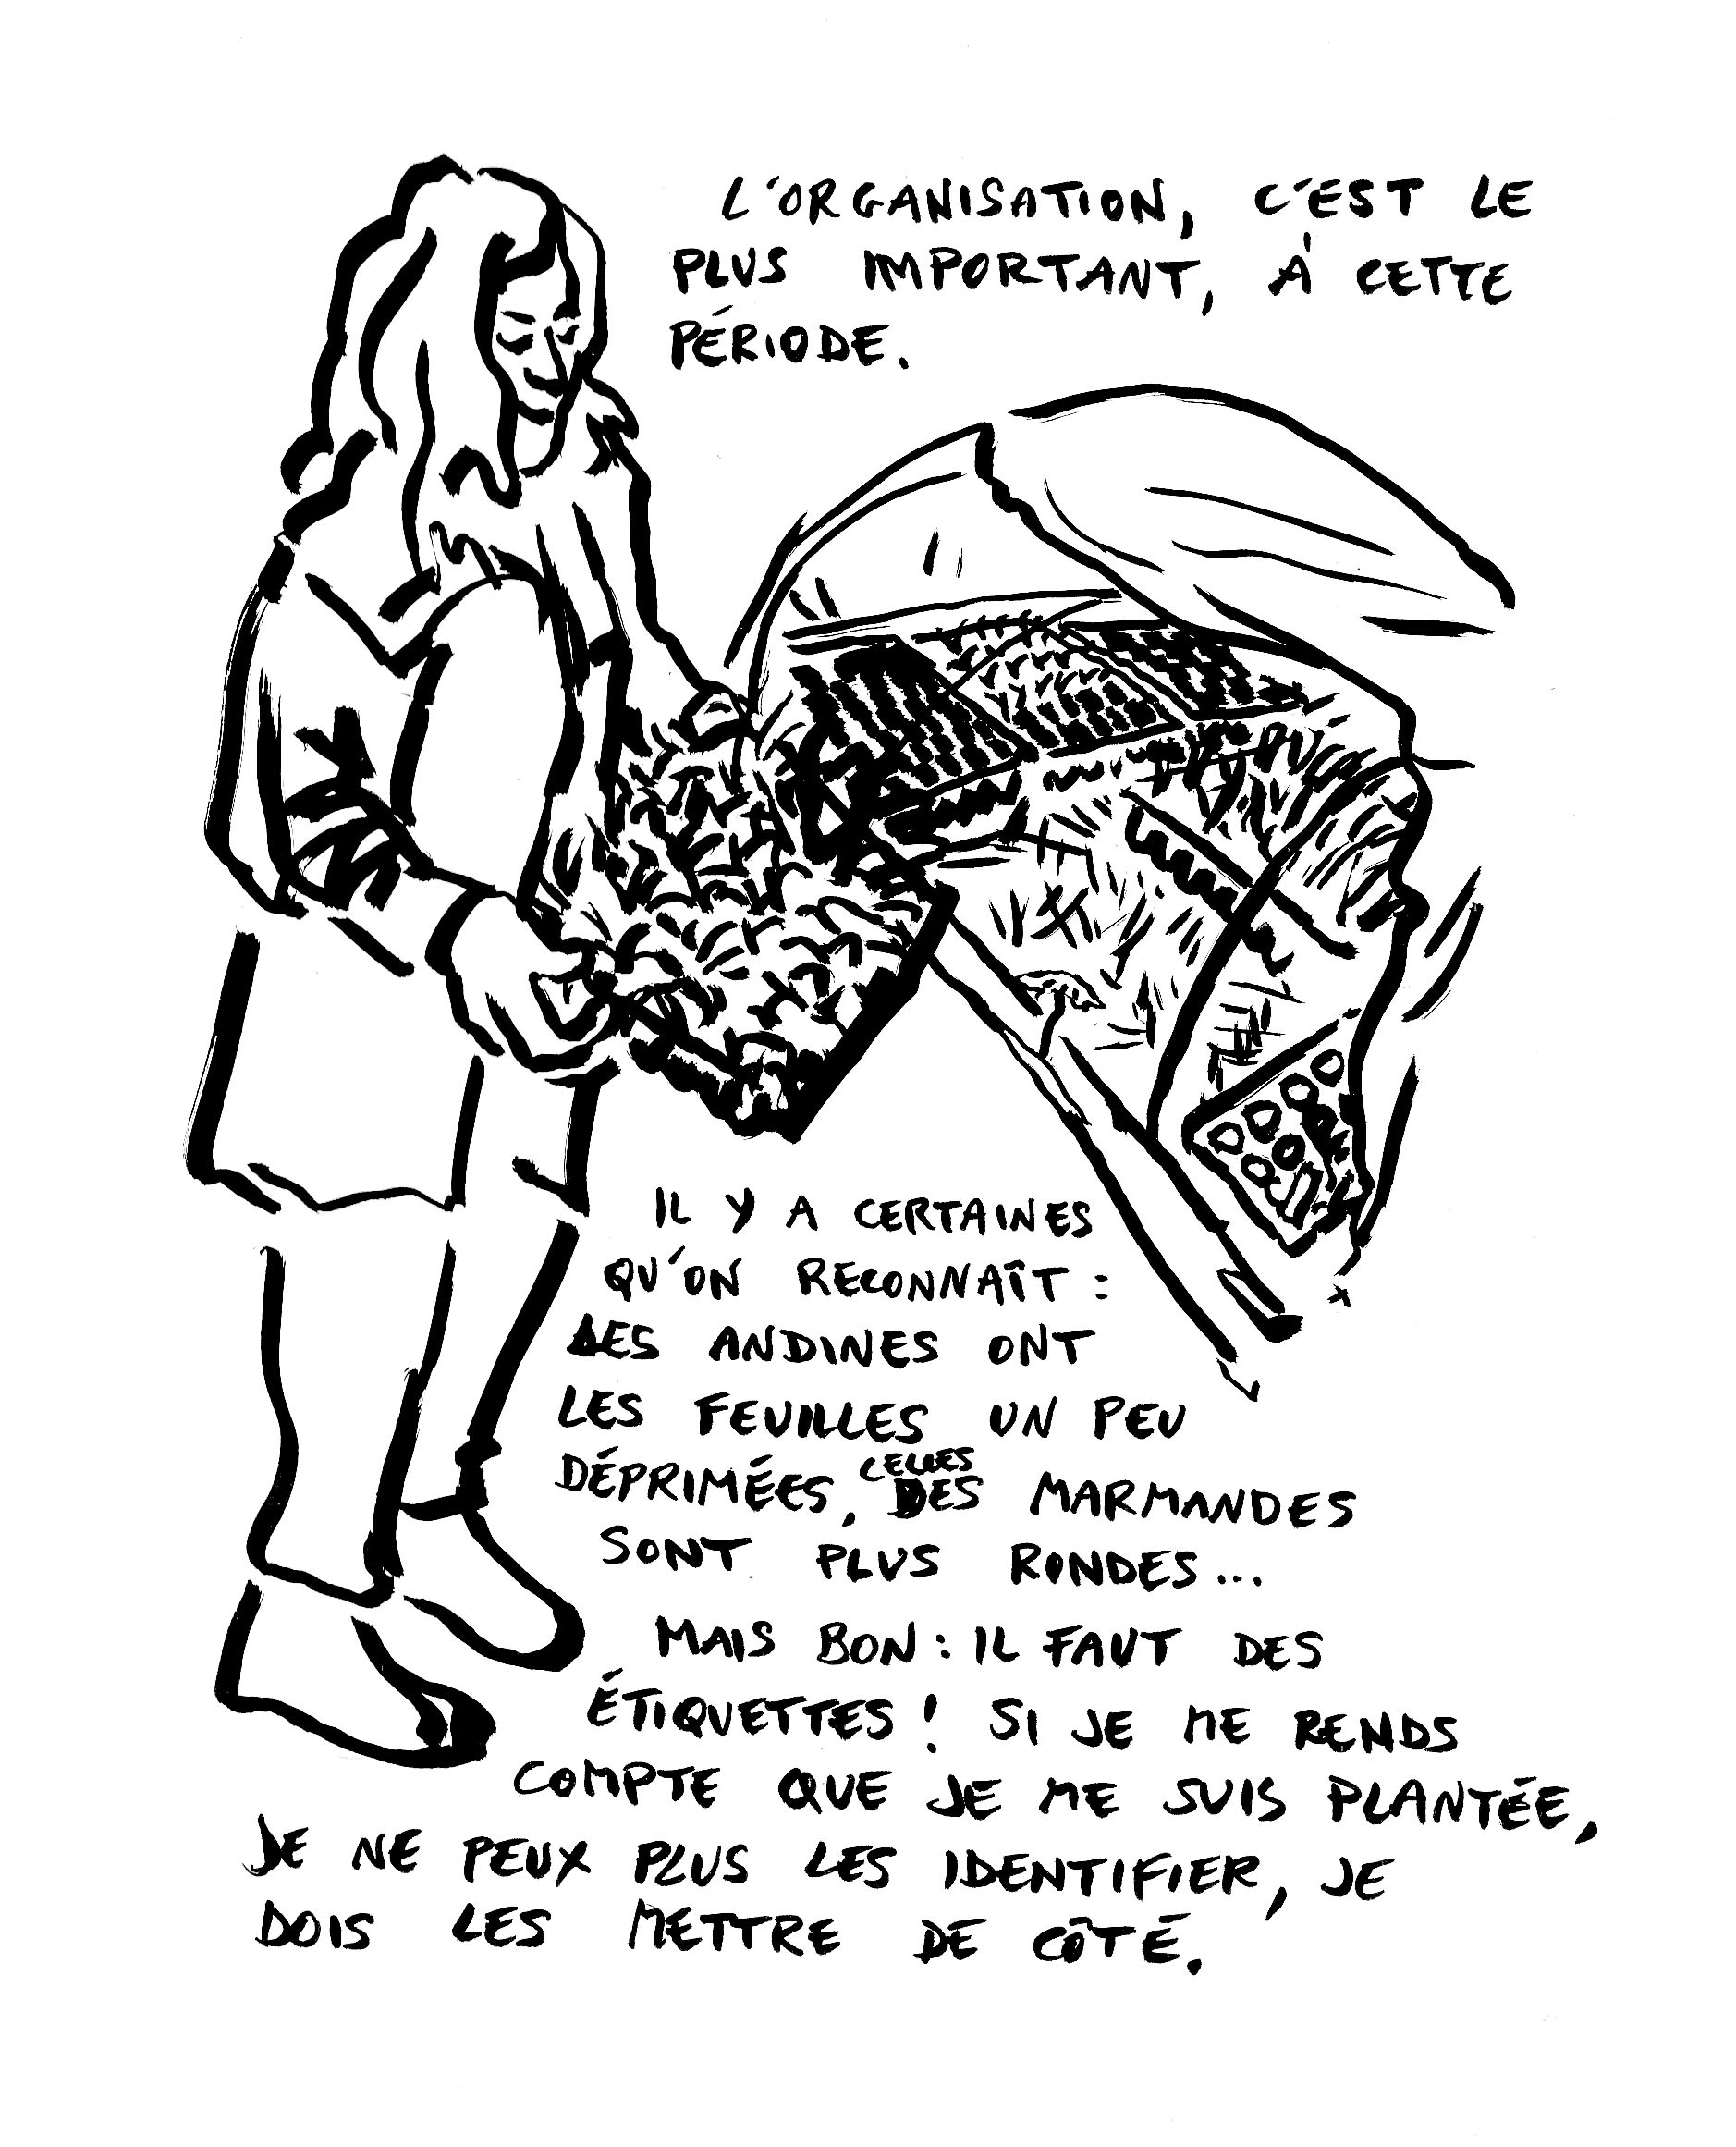 L'ORGANISATION, C'EST LE
PLUS IMPORTANT, À CETTE
PÉRIODE.
IL Y A CERTAINES
QU'ON RECONNAÎT :
LES ANDINES ONT
LES FEUILLES UN PEU
DÉPRIMÉES, CELLES DES MARMANDES
SONT PLUS RONDES...
MAIS BON : IL FAUT DES
ÉTIQUETTES ! SI JE ME RENDS
COMPTE QUE JE ME SUIS PLANTÉE,
JE NE PEUX PLUS LES IDENTIFIER, JE
DOIS LES METTRE DE CÔTÉ.